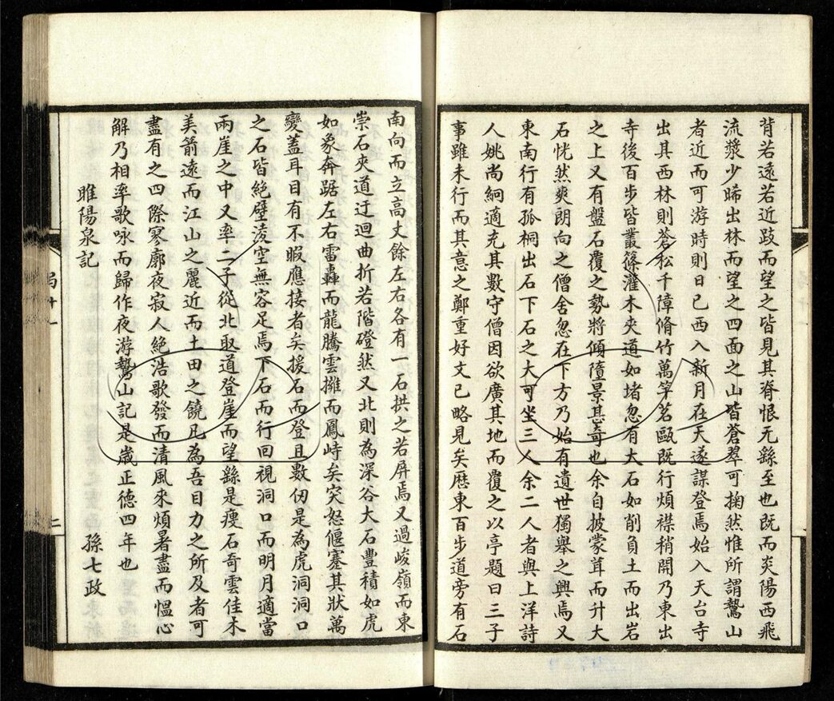 背若遠若近跂而望之皆見其脊恨无繇至也既而炎陽西飛
流漿少晞出林而望之四面之山皆蒼翠可掬然惟所謂鷲山
者近而可游時則日已西入新月在天遂謀登焉始入天台寺
出其西林則蒼松千障脩竹萬竿茗甌既行煩襟稍開乃東出
寺後百步皆叢篠灌木夾道如堵忽有大石如削負土而出岩
之上又有盤石覆之勢將傾墮景其奇也余自披蒙茸而升大
石恍然爽朗向之僧舍忽在下方乃始有遺世獨舉之興焉又
東南行有孤桐出石下石之大可坐三人余二人者與上洋詩
人姚尚絅適充其數守僧因欲廣其地而覆之以亭題曰三子
事雖未行而其意之鄭重好文已略見矣歷東百步道旁有石
南向而立高丈餘左右各有一石拱之若屏焉又過峻嶺而東
崇石夾道迂迴曲折若階磴然又北則為深谷大石豐積如虎
如象奔踞左右雷轟而龍騰雲擁而鳳峙矣突怒偃蹇其狀萬
變蓋耳目有不暇應接者矣援石而登且數仞是為虎洞洞口
之石皆絕壁淩空無容足焉下石而行回視洞口而明月適當
兩崖之中又率二子從北取道登崖而望繇是瘦石奇雲佳木
美箭遠而江山之麗近而土田之饒凡為吾目力之所及者可
盡有之四際寥廓夜寂人絕浩歌發而清風來煩暑盡而慍心
解乃相率歌咏而歸作夜游鷲山記是歲正德四年也
睢陽泉記
孫七政
二